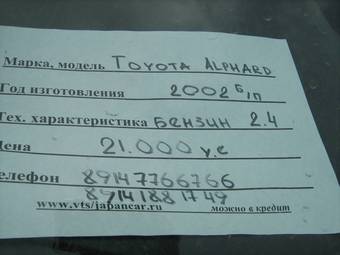 Марка, модель TOYOTA ALPHARD
Год изготовления 2002 Б/П
Тех. характеристика БЕНЗИН 2.4
Цена 21.000 у.е
Телефон 89147766766
89141881749
www.vts/japancar.ru можно в кредит